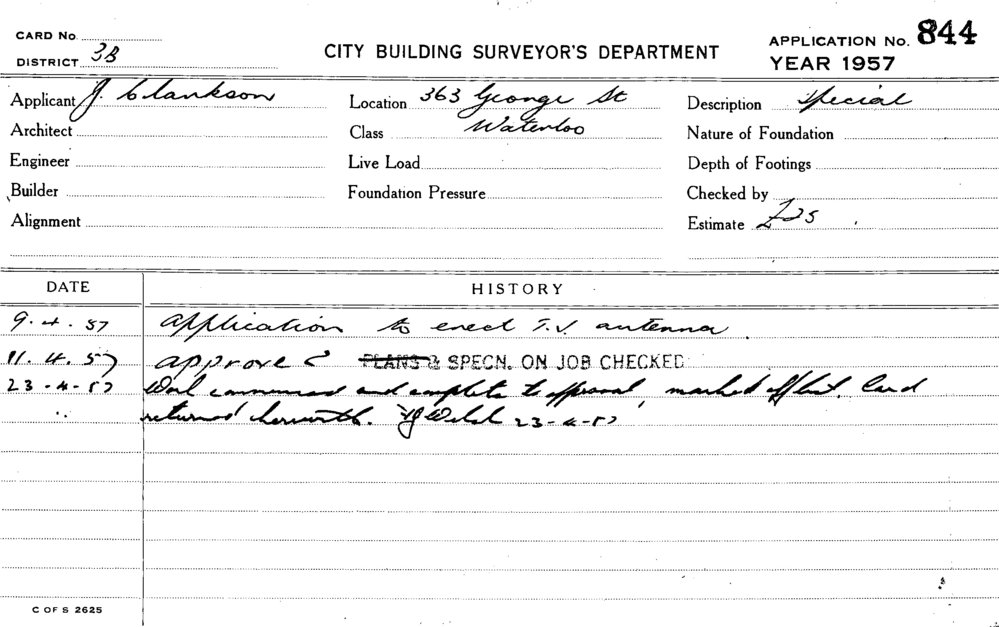 CARD No
DISTRICT 3B
CITY BUILDING SURVEYOR'S DEPARTMENT
APPLICATION No. 844
YEAR 1957
Applicant J. Clarkson
Location 363 George St
Description Special
Architect
Class Waterloo
Nature of Foundation
Engineer
Live Load
Depth of Footings
Builder
Foundation Pressure
Checked by
Alignment
Estimate £25
DATE HISTORY
9.4.57 Application to erect T.V. antenna
11.4.57 approved PLANS & SPECN. ON JOB CHECKED
23-4-57 Work commenced and complete to approval, marked off list. Card
returned herewith. Welsh 23-4-57
C OF S 2625